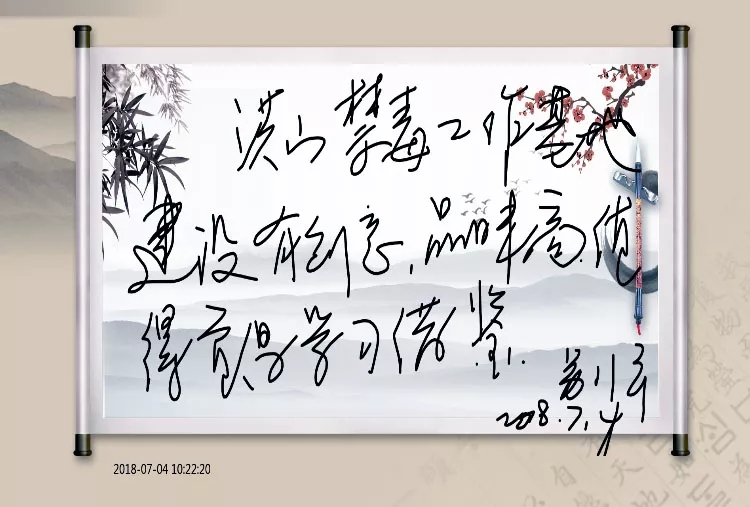 洪山禁毒工作基地
建设有创意，品味高，值
得学习借鉴
2018.7.4
2018-07-04 10:22:20